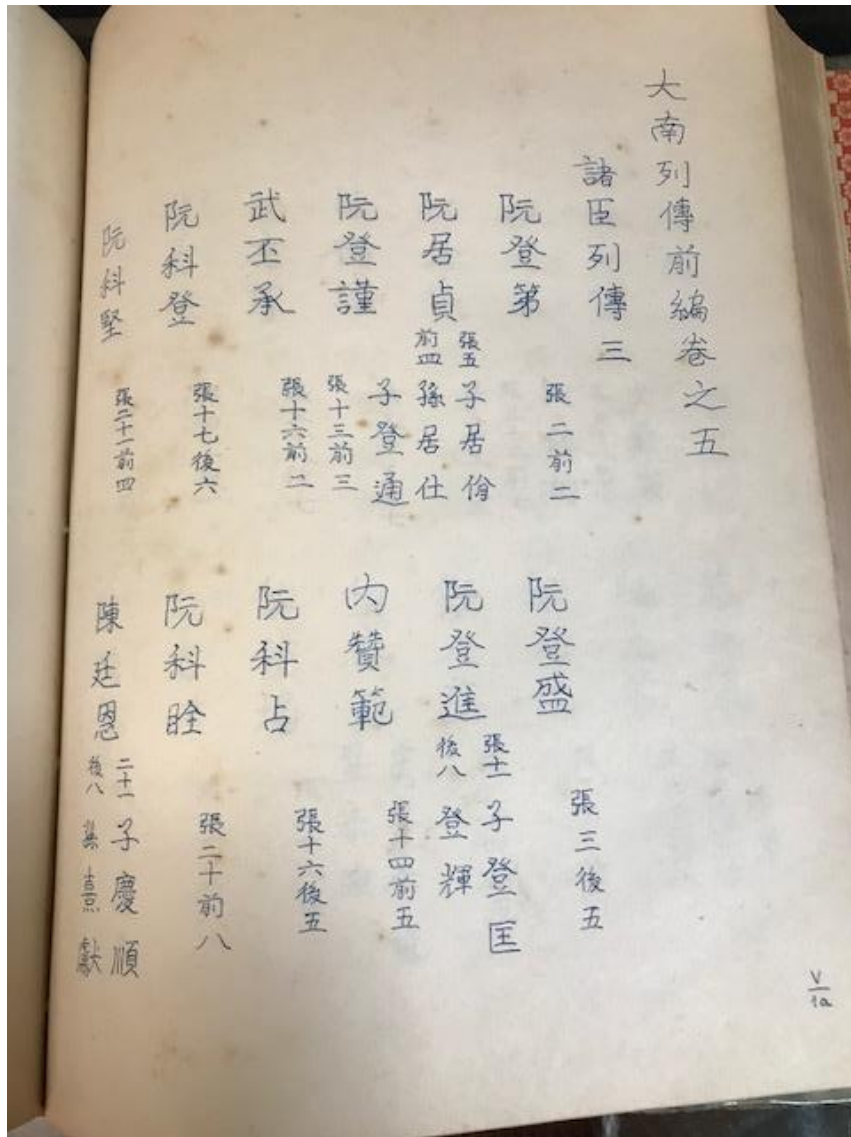 大南列傳前編卷之五
諸臣列傳三
阮登第 張二前二
阮登盛 張三後五
阮居貞 張五前四 子居佾 孫居仕
阮登進 張十一後八 子登匡 登輝
阮登謹 張十三前三 子登通
内贊範 張十四前五
武丕承 張十六前二
阮科占 張十六後五
阮科登 張十七後六
阮科 張二十前八
阮科堅 張二十一前四
陳廷恩 二十一後八 子慶順 孫熹獻
V/1a